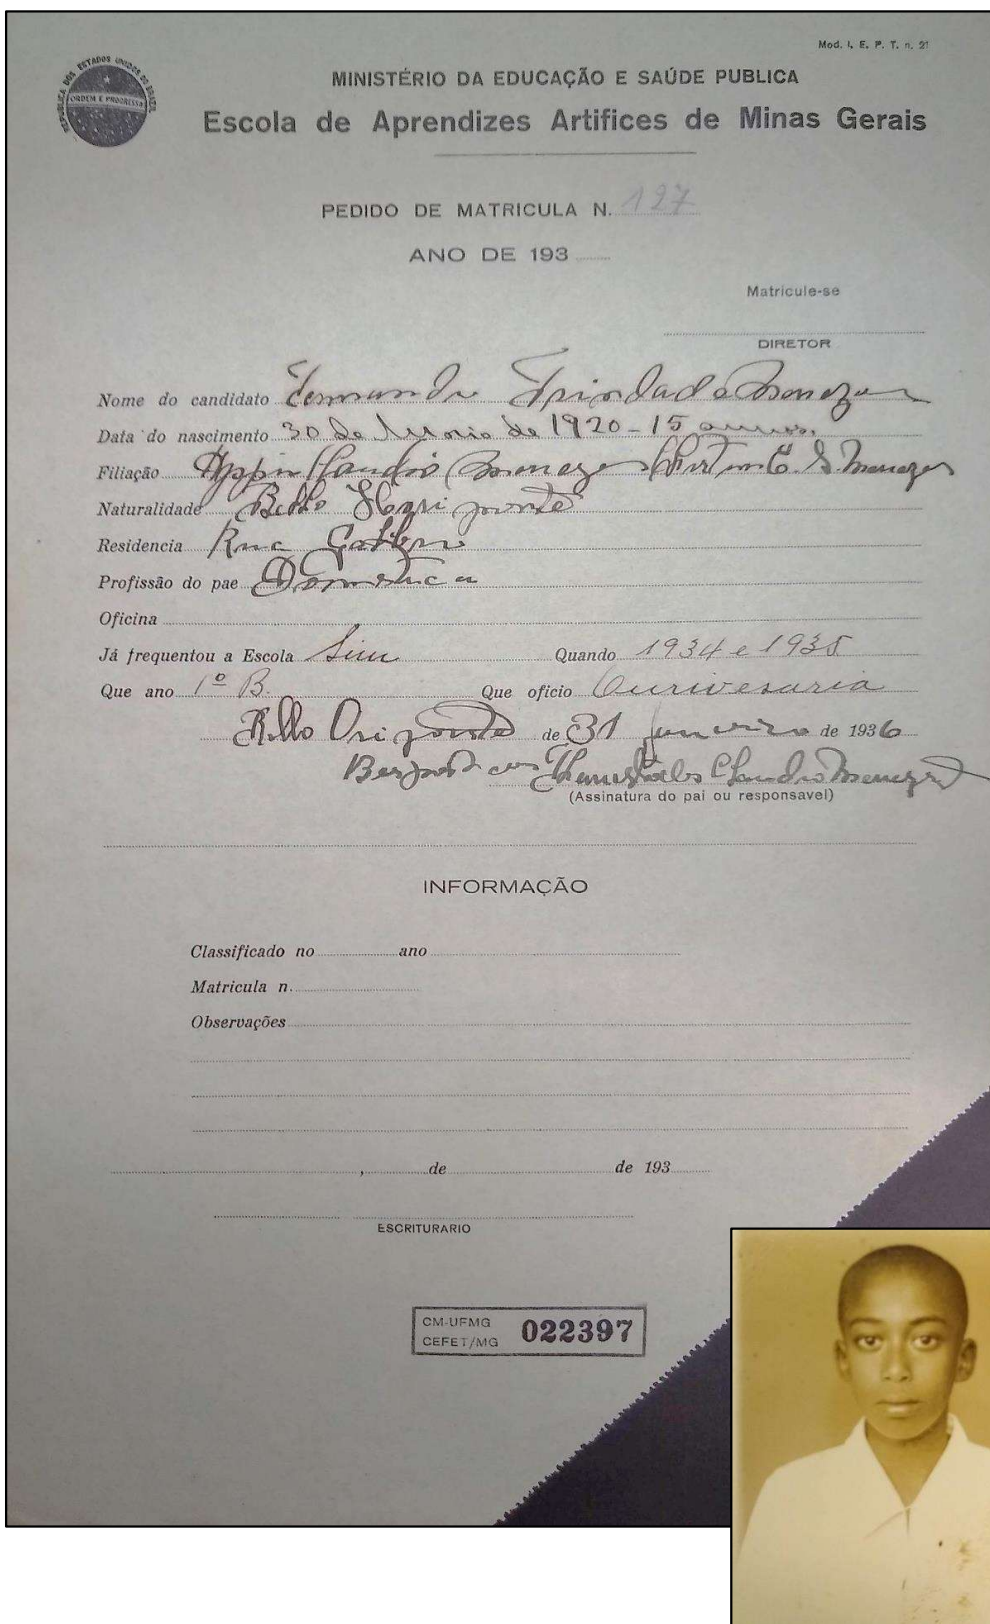 Mod. I. E. P. T. n. 21
REPUBLICA DOS ESTADOS UNIDOS DO BRASIL
ORDEM E PROGRESSO
MINISTÉRIO DA EDUCAÇÃO E SAÚDE PUBLICA
Escola de Aprendizes Artifices de Minas Gerais
PEDIDO DE MATRICULA N. 127
ANO DE 193
Matricule-se
DIRETOR
Nome do candidato Trindade Menezes
Data do nascimento 30 de Maio de 1920 - 15 annos.
Filiação Claudio Menezes S. Menezes
Naturalidade Bello Horizonte
Residencia Rua
Profissão do pae Domestica
Oficina
Já frequentou a Escola Sim Quando 1934 e 1935
Que ano 1º B. Que oficio Ourivesaria
Bello Orizonte de 31 janeiro de 1936
Claudio Menezes
(Assinatura do pai ou responsavel)
INFORMAÇÃO
Classificado no ano
Matricula n.
Observações
, de de 193
ESCRITURARIO
CM-UFMG
CEFET/MG 022397